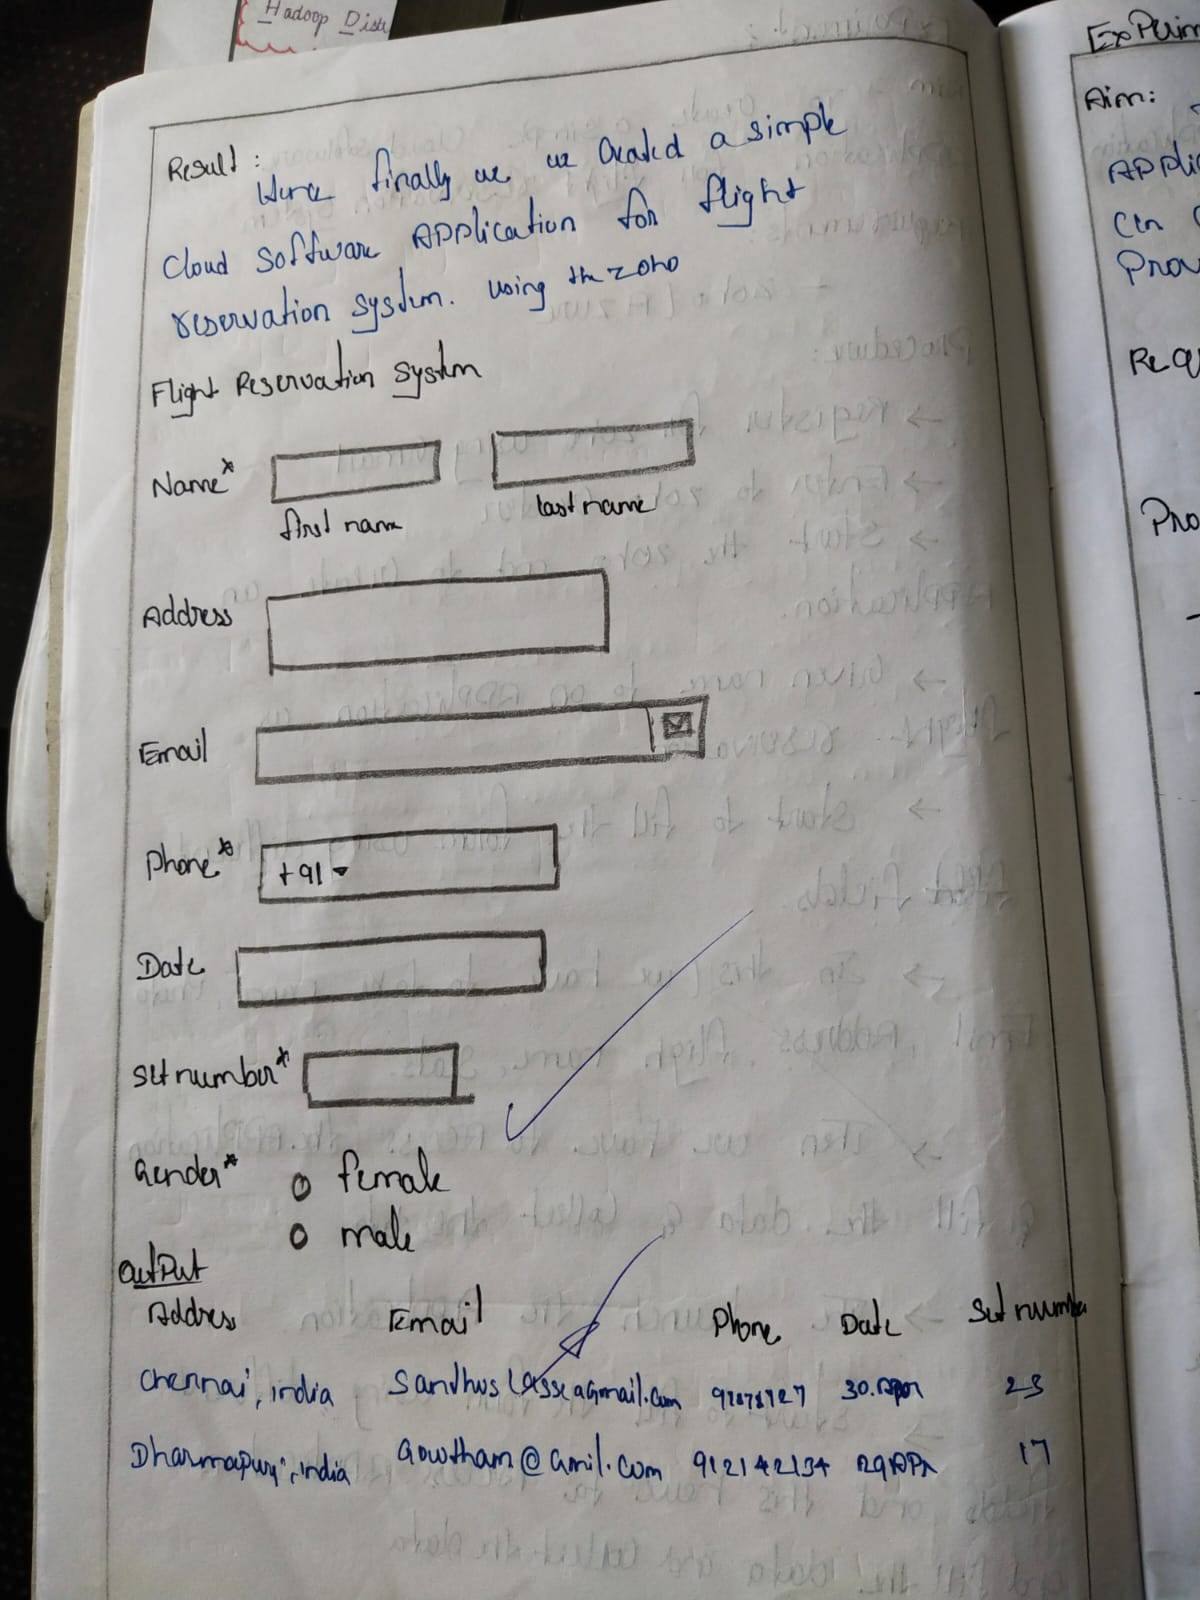 Hadoop Distr
Result:
Here finally we we created a simple
Cloud Software Application for flight
reservation system. using the zoho
Flight Reservation System
Name*
first name
last name
Address
Email
Phone*
+91
Date
Set number*
Gender*
female
male
Output
Address Email Phone Date Set number
Chennai, india @gmail.com 30.Apr 23
Dharmapuri, india Gowtham@Gmil.com 912142134 29 APR 17
Experim
Aim:
Applic
Prov
Requ
Pro